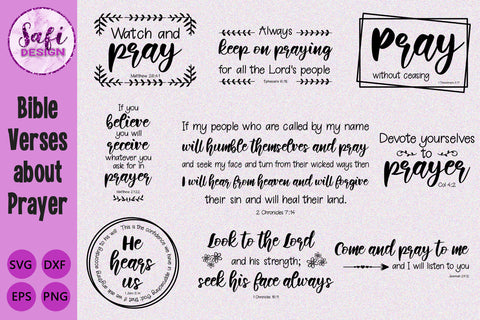 Safi
DESIGN
Bible
Verses
about
Prayer
SVG DXF
EPS PNG
Watch and
pray
Matthew 26:41
Always
keep on praying
for all the Lord's people
Ephesians 6:18
Pray
without ceasing
1 Thessalonians 5:17
If you
believe
you will
receive
whatever you
ask for in
prayer
Matthew 21:22
If my people who are called by my name
will humble themselves and pray
and seek my face and turn from their wicked ways then
I will hear from heaven and will forgive
their sin and will heal their land.
2 Chronicles 7:14
Devote yourselves
to
prayer
Col 4:2
This is the confidence we have in approaching God: that if we ask anything according to his will
He
hears
us
1 John 5:14
Look to the Lord
and his strength;
seek his face always
1 Chronicles 16:11
Come and pray to me
and I will listen to you
Jeremiah 29:12